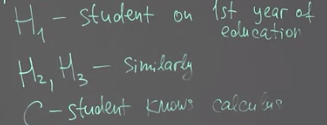 H₁ - student on 1st year of education
H₂, H₃ - Similarly
C - student knows calculus